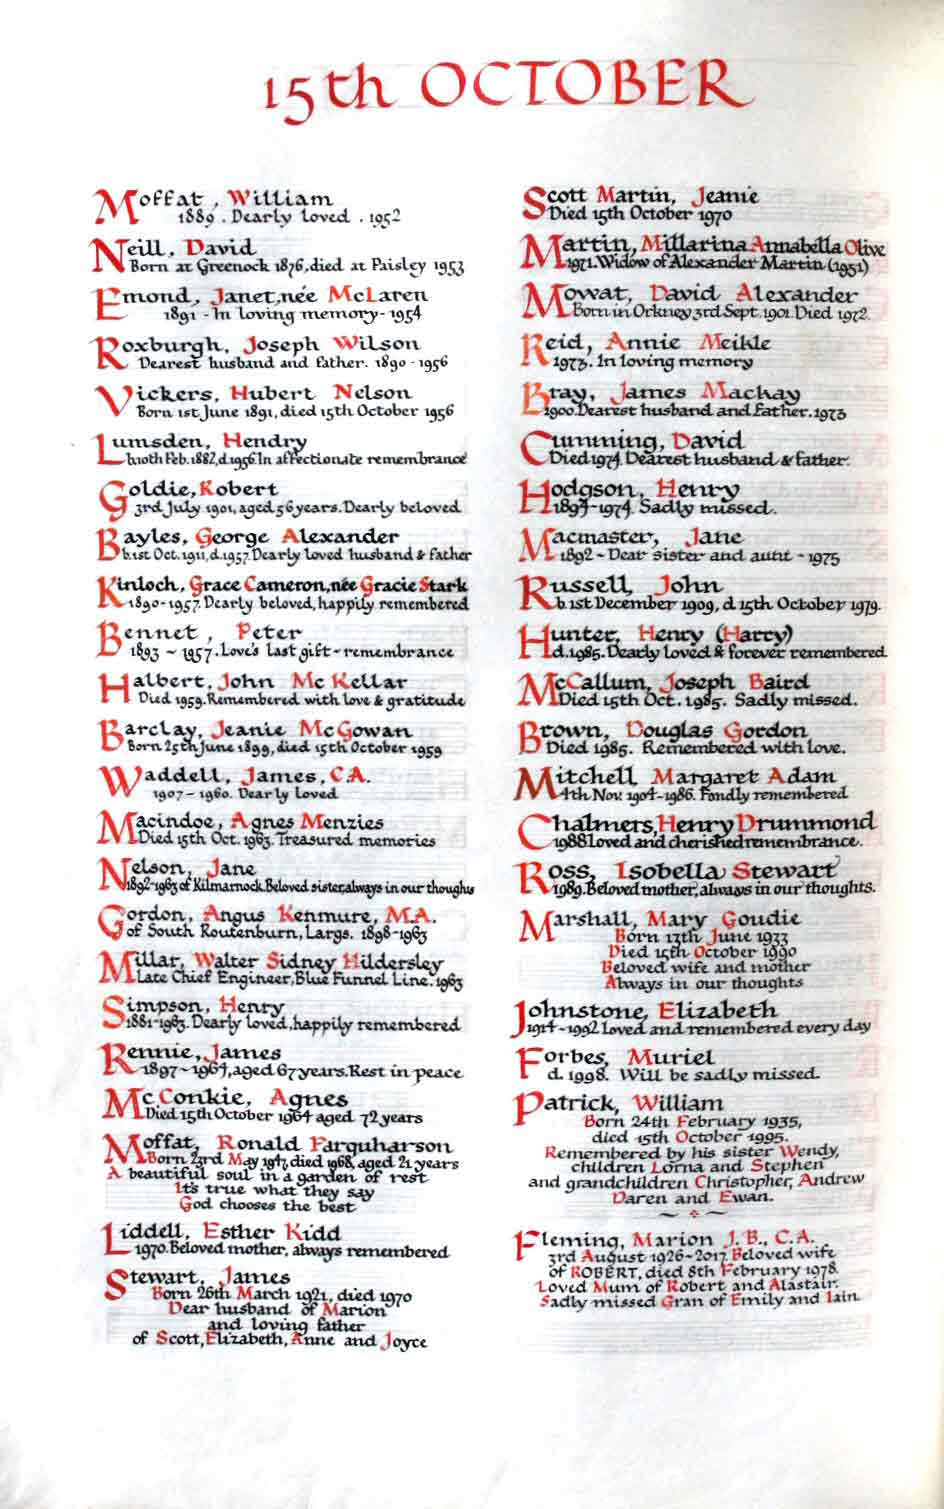 15th OCTOBER
Moffat, William
1889. Dearly loved. 1952
Neill, David
Born at Greenock 1876, died at Paisley 1953
Emond, Janet, née McLaren
1891 - In loving memory - 1954
Roxburgh, Joseph Wilson
Dearest husband and father. 1890-1956
Vickers, Hubert Nelson
Born 1st June 1891, died 15th October 1956
Lumsden, Hendry
b. 10th Feb. 1882, d. 1956. In affectionate remembrance
Goldie, Robert
3rd July 1901, aged 56 years. Dearly beloved
Bayles, George Alexander
b. 1st Oct. 1911, d. 1957. Dearly loved husband & father
Kinloch, Grace Cameron, née Gracie Stark
1890-1957. Dearly beloved, happily remembered
Bennet, Peter
1893 ~ 1957. Love's last gift - remembrance
Halbert, John McKellar
Died 1959. Remembered with love & gratitude
Barclay, Jeanie McGowan
Born 25th June 1899, died 15th October 1959
Waddell, James, C.A.
1907-1960. Dearly loved
Macindoe, Agnes Menzies
Died 15th Oct. 1963. Treasured memories
Nelson, Jane
1892-1963 of Kilmarnock. Beloved sister, always in our thoughts
Gordon, Angus Kenmure, M.A.
of South Routenburn, Largs. 1898-1963
Millar, Walter Sidney Hildersley
Late Chief Engineer, Blue Funnel Line. 1963
Simpson, Henry
1881-1963. Dearly loved, happily remembered
Rennie, James
1897-1964, aged 67 years. Rest in peace
McConkie, Agnes
Died 15th October 1964 aged 72 years
Moffat, Ronald Farquharson
Born 23rd May 1947, died 1968, aged 21 years
A beautiful soul in a garden of rest
It's true what they say
God chooses the best
Liddell, Esther Kidd
1970. Beloved mother, always remembered
Stewart, James
Born 26th March 1921, died 1970
Dear husband of Marion
and loving father
of Scott, Elizabeth, Anne and Joyce
Scott Martin, Jeanie
Died 15th October 1970
Martin, Millarina Annabella Olive
1971. Widow of Alexander Martin (1951)
Mowat, David Alexander
Born in Orkney 3rd Sept. 1901. Died 1972.
Reid, Annie Meikle
1973. In loving memory
Bray, James Mackay
1900. Dearest husband and father. 1973
Cumming, David
Died 1974. Dearest husband & father.
Hodgson, Henry
1894-1974. Sadly missed.
Macmaster, Jane
1892 - Dear sister and aunt - 1975
Russell, John
b. 1st December 1909, d. 15th October 1979.
Hunter, Henry (Harry)
d. 1985. Dearly loved & forever remembered
McCallum, Joseph Baird
Died 15th Oct. 1985. Sadly missed.
Brown, Douglas Gordon
Died 1985. Remembered with love.
Mitchell Margaret Adam
4th Nov. 1904-1986. Fondly remembered
Chalmers, Henry Drummond
1988 Loved and cherished remembrance.
Ross, Isobella Stewart
1989. Beloved mother, always in our thoughts.
Marshall, Mary Goudie
Born 13th June 1933
Died 15th October 1990
Beloved wife and mother
Always in our thoughts
Johnstone, Elizabeth
1914-1992 Loved and remembered every day
Forbes, Muriel
d. 1998. Will be sadly missed.
Patrick, William
Born 24th February 1935,
died 15th October 1995.
Remembered by his sister Wendy,
children Lorna and Stephen
and grandchildren Christopher, Andrew
Daren and Ewan.
Fleming, Marion J. B., C.A.
3rd August 1926-2017. Beloved wife
of ROBERT, died 8th February 1978.
Loved Mum of Robert and Alastair.
Sadly missed Gran of Emily and Iain.